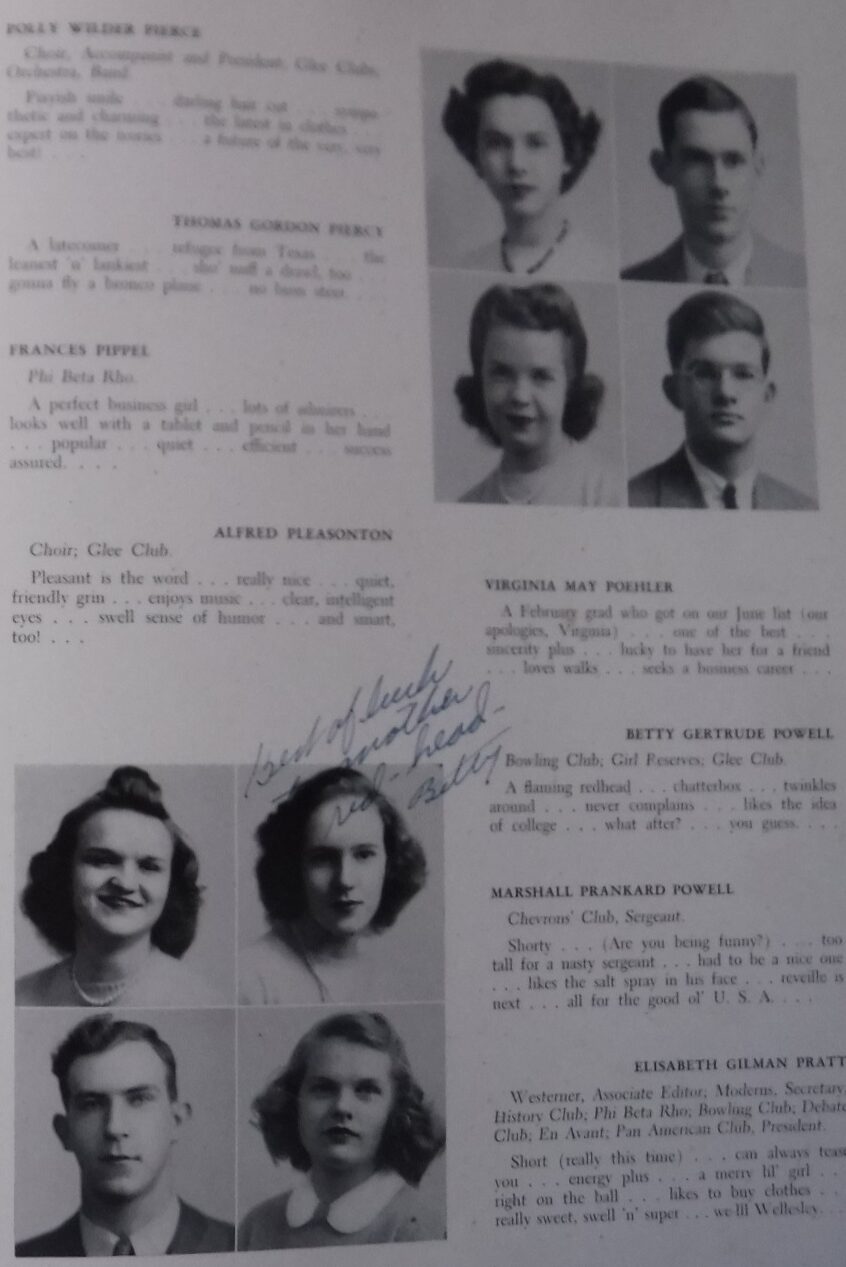 POLLY WILDER PIERCE
Choir, Accompanist and President, Glee Club;
Orchestra, Band.
Puyish smile . . . darling hair cut . . . sympa-
thetic and charming . . . the latest in clothes . . .
expert on the movies . . . a future of the very, very
best! . . .
THOMAS GORDON PIERCY
A latecomer . . . refugee from Texas . . . the
leanest 'n' lankiest . . . sho' nuff a drawl, too . . .
gonna fly a bronco plane . . . no bum steer. . . .
FRANCES PIPPEL
Phi Beta Rho.
A perfect business girl . . . lots of admirers . . .
looks well with a tablet and pencil in her hand
. . . popular . . . quiet . . . efficient . . . success
assured. . . .
ALFRED PLEASONTON
Choir; Glee Club.
Pleasant is the word . . . really nice . . . quiet,
friendly grin . . . enjoys music . . . clear, intelligent
eyes . . . swell sense of humor . . . and smart,
too! . . .
VIRGINIA MAY POEHLER
A February grad who got on our June list (our
apologies, Virginia) . . . one of the best . . .
sincerity plus . . . lucky to have her for a friend
. . . loves walks . . . seeks a business career . . .
best of luck
to another
red-head-
Betty
BETTY GERTRUDE POWELL
Bowling Club; Girl Reserves; Glee Club.
A flaming redhead . . . chatterbox . . . twinkles
around . . . never complains . . . likes the idea
of college . . . what after? . . . you guess. . . .
MARSHALL PRANKARD POWELL
Chevrons' Club, Sergeant.
Shorty . . . (Are you being funny?) . . . too
tall for a nasty sergeant . . . had to be a nice one
. . . likes the salt spray in his face . . . reveille is
next . . . all for the good ol' U. S. A. . . .
ELISABETH GILMAN PRATT
Westerner, Associate Editor; Moderns, Secretary;
History Club; Phi Beta Rho; Bowling Club; Debate
Club; En Avant; Pan American Club, President.
Short (really this time) . . . can always tease
you . . . energy plus . . . a merry lil' girl . . .
right on the ball . . . likes to buy clothes . . .
really sweet, swell 'n' super . . . we lil Wellesley. . . .